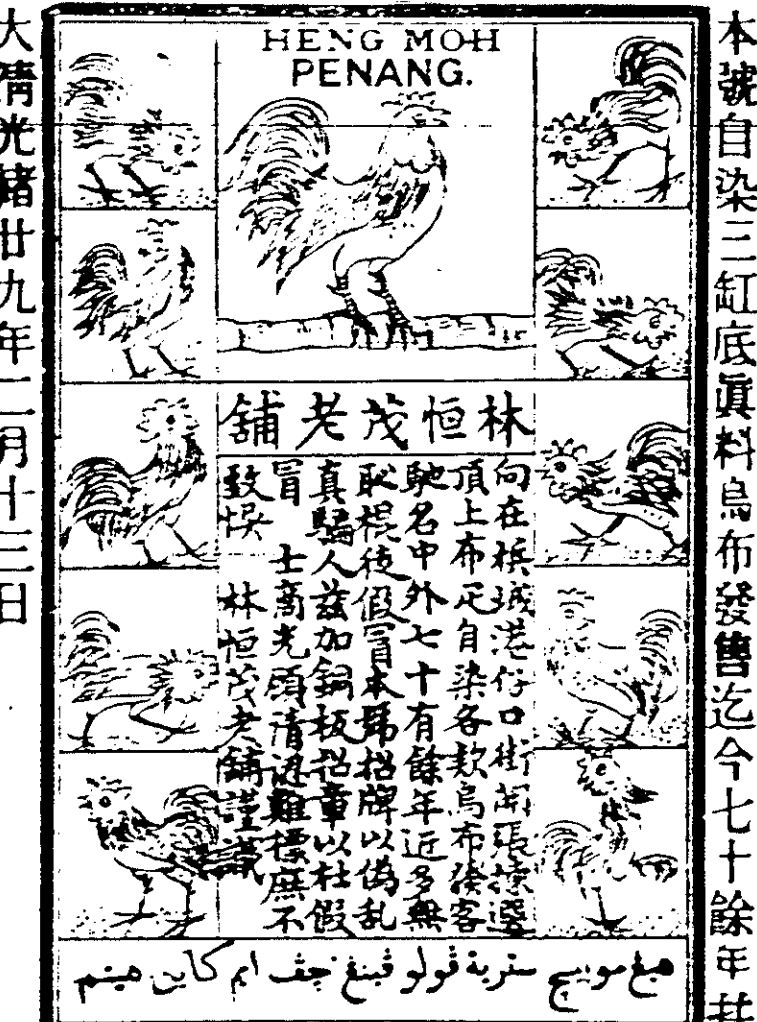 本號自染三缸底眞料烏布發售迄今七十餘年
HENG MOH
PENANG.
林恒茂老舖
向在檳城港仔口街開張揀選
頂上布疋自染各款烏布發客
馳名中外七十有餘年近多無
恥棍徒假冒本號招牌以偽乱
真騙人茲加銅板招章以杜假
冒 士商光顧請認雞標庶不
致悞 林恒茂老舖謹識
هيڠ موه بيچ سترية ڤولو ڤينڠ چڤ ايم كاين هيتم
大清光緒廿九年二月十三日